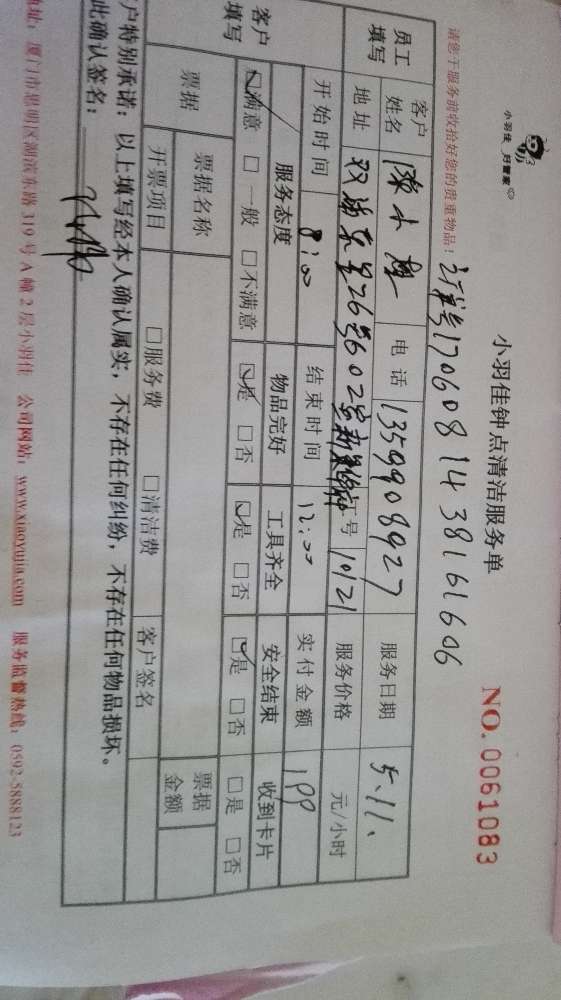 小羽佳 好管家
小羽佳钟点清洁服务单
NO. 0061083
请您于服务前收拾好您的贵重物品!
17060814 38161606
员工填写 客户姓名 陈 电话 13599908927 服务日期 5.11.
地址 26号602室 号 10121 服务价格 元/小时
开始时间 8:00 结束时间 12:00 实付金额 199
客户填写 服务态度 物品完好 工具齐全 安全结束 收到卡片
☑满意 □一般 □不满意 ☑是 □否 ☑是 □否 ☑是 □否 □是 □否
票据 票据名称 票据金额
开票项目 □服务费 □清洁费 客户签名
户特别承诺:以上填写经本人确认属实,不存在任何纠纷,不存在任何物品损坏。
此确认签名:
地址:厦门市思明区湖滨东路 319 号 A 幢 2 层小羽佳 公司网站:www.xiaoyujia.com 服务监督热线:0592-5888123